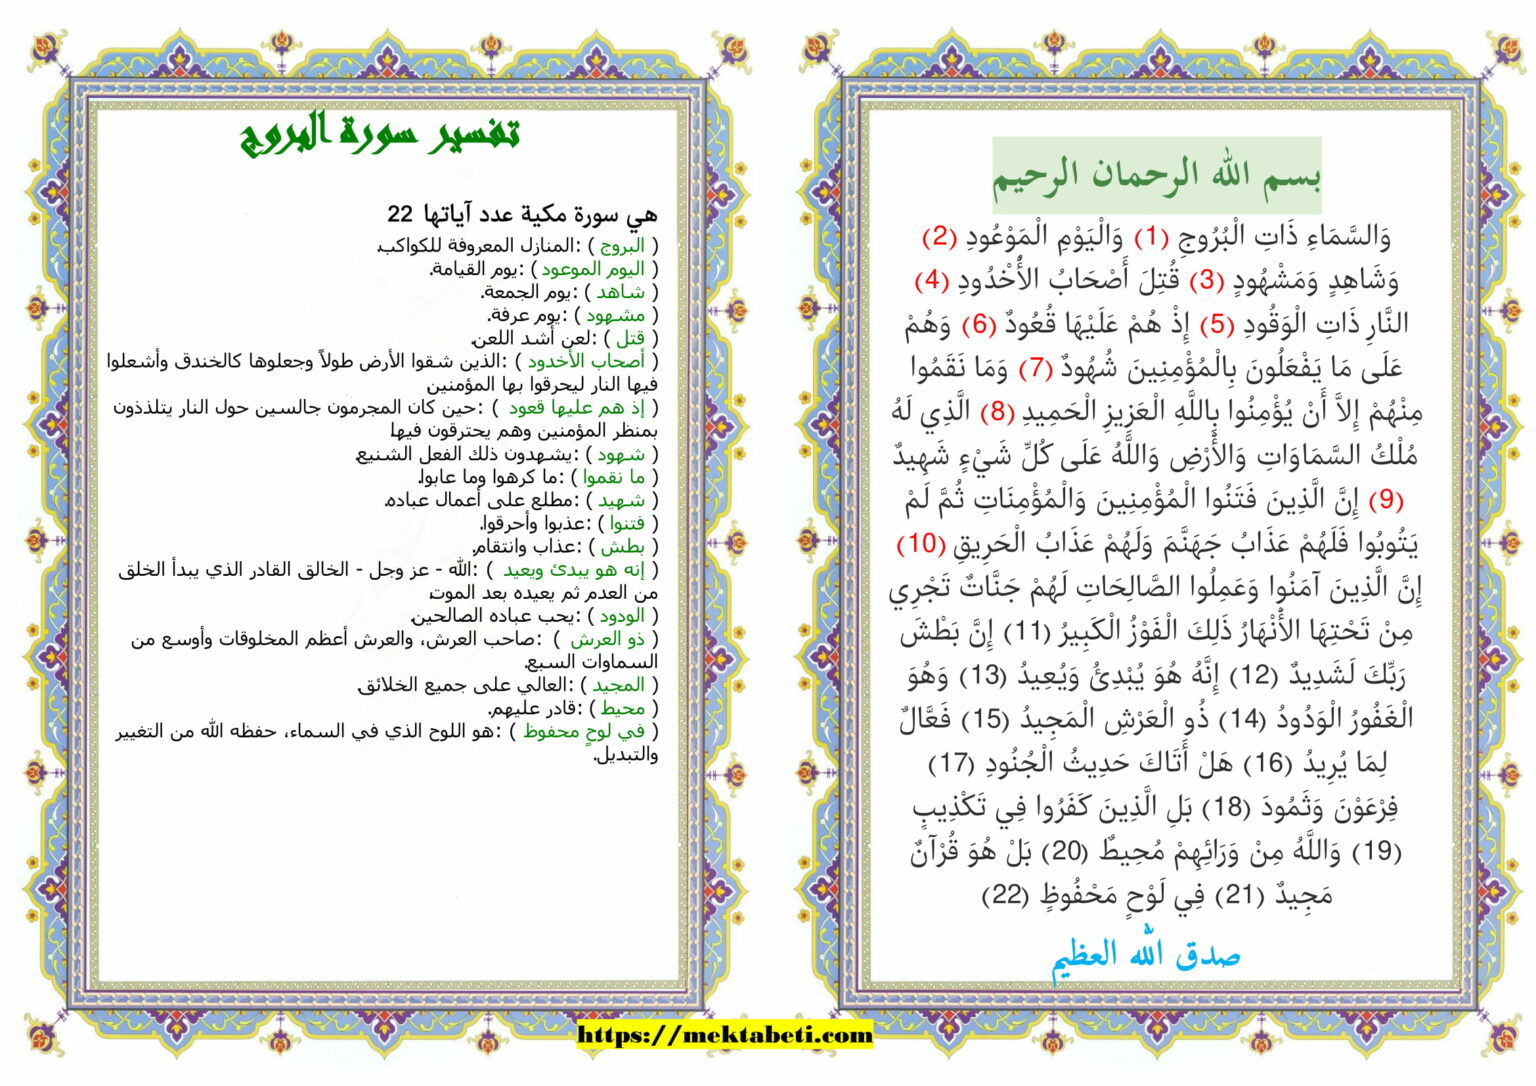 بسم الله الرحمان الرحيم
وَالسَّمَاءِ ذَاتِ الْبُرُوجِ (1) وَالْيَوْمِ الْمَوْعُودِ (2)
وَشَاهِدٍ وَمَشْهُودٍ (3) قُتِلَ أَصْحَابُ الأُخْدُودِ (4)
النَّارِ ذَاتِ الْوَقُودِ (5) إِذْ هُمْ عَلَيْهَا قُعُودٌ (6) وَهُمْ
عَلَى مَا يَفْعَلُونَ بِالْمُؤْمِنِينَ شُهُودٌ (7) وَمَا نَقَمُوا
مِنْهُمْ إِلاَّ أَنْ يُؤْمِنُوا بِاللَّهِ الْعَزِيزِ الْحَمِيدِ (8) الَّذِي لَهُ
مُلْكُ السَّمَاوَاتِ وَالأَرْضِ وَاللَّهُ عَلَى كُلِّ شَيْءٍ شَهِيدٌ
(9) إِنَّ الَّذِينَ فَتَنُوا الْمُؤْمِنِينَ وَالْمُؤْمِنَاتِ ثُمَّ لَمْ
يَتُوبُوا فَلَهُمْ عَذَابُ جَهَنَّمَ وَلَهُمْ عَذَابُ الْحَرِيقِ (10)
إِنَّ الَّذِينَ آمَنُوا وَعَمِلُوا الصَّالِحَاتِ لَهُمْ جَنَّاتٌ تَجْرِي
مِنْ تَحْتِهَا الأَنْهَارُ ذَلِكَ الْفَوْزُ الْكَبِيرُ (11) إِنَّ بَطْشَ
رَبِّكَ لَشَدِيدٌ (12) إِنَّهُ هُوَ يُبْدِئُ وَيُعِيدُ (13) وَهُوَ
الْغَفُورُ الْوَدُودُ (14) ذُو الْعَرْشِ الْمَجِيدُ (15) فَعَّالٌ
لِمَا يُرِيدُ (16) هَلْ أَتَاكَ حَدِيثُ الْجُنُودِ (17)
فِرْعَوْنَ وَثَمُودَ (18) بَلِ الَّذِينَ كَفَرُوا فِي تَكْذِيبٍ
(19) وَاللَّهُ مِنْ وَرَائِهِمْ مُحِيطٌ (20) بَلْ هُوَ قُرْآنٌ
مَجِيدٌ (21) فِي لَوْحٍ مَحْفُوظٍ (22)
صدق الله العظيم
تفسير سورة البروج
هي سورة مكية عدد آياتها 22
( البروج ) :المنازل المعروفة للكواكب.
( اليوم الموعود ) :يوم القيامة.
( شاهد ) :يوم الجمعة.
( مشهود ) :يوم عرفة.
( قتل ) :لعن أشد اللعن.
( أصحاب الأخدود ) :الذين شقوا الأرض طولاً وجعلوها كالخندق وأشعلوا
فيها النار ليحرقوا بها المؤمنين
( إذ هم عليها قعود ) :حين كان المجرمون جالسين حول النار يتلذذون
بمنظر المؤمنين وهم يحترقون فيها.
( شهود ) :يشهدون ذلك الفعل الشنيع.
( ما نقموا ) :ما كرهوا وما عابوا.
( شهيد ) :مطلع على أعمال عباده.
( فتنوا ) :عذبوا وأحرقوا.
( بطش ) :عذاب وانتقام.
( إنه هو يبدئ ويعيد ) :الله - عز وجل - الخالق القادر الذي يبدأ الخلق
من العدم ثم يعيده بعد الموت.
( الودود ) :يحب عباده الصالحين.
( ذو العرش ) :صاحب العرش، والعرش أعظم المخلوقات وأوسع من
السماوات السبع.
( المجيد ) :العالي على جميع الخلائق.
( محيط ) :قادر عليهم.
( في لوحٍ محفوظ ) :هو اللوح الذي في السماء، حفظه الله من التغيير
والتبديل.
https://mektabeti.com